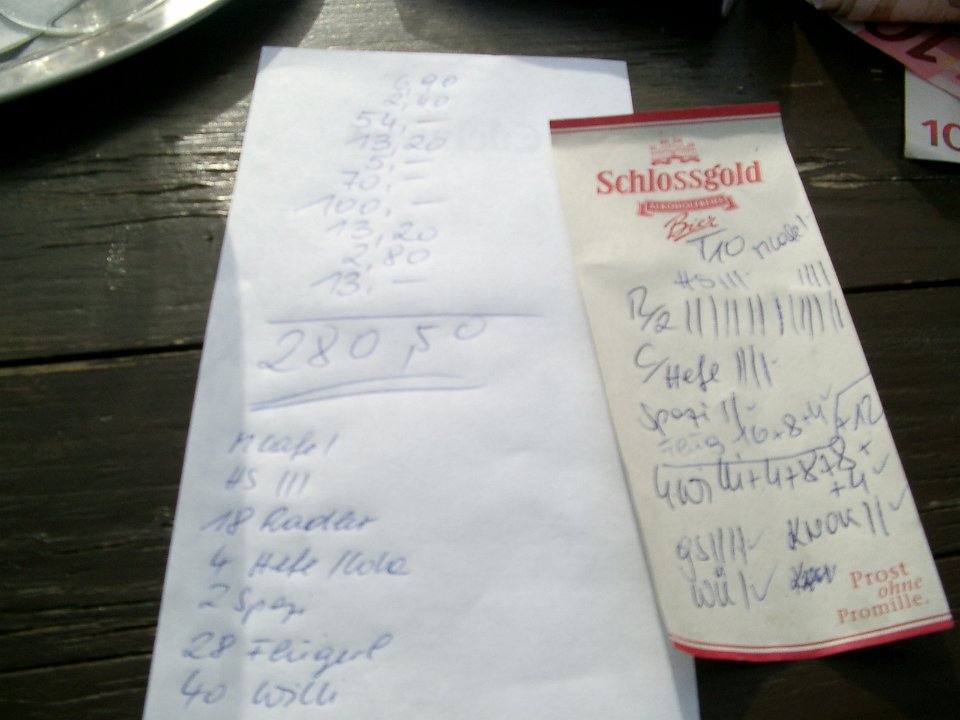 6,90
2,40
54,—
13,20
5,—
70,—
100,—
13,20
2,80
13,—
280,50
HS III
18 Radler
4 Hefe/Kola
2 Spezi
28 Flügerl
40 Willi
Schlossgold
ALKOHOLFREIES
Bier
T10
HS III IIII
R/2
C/Hefe IIII
Spezi II
Flüg 16+8+4 +12
4 Willi+4+8+8+
+4
gs IIII KNOV II
Wü I
Prost
ohne
Promille.
10